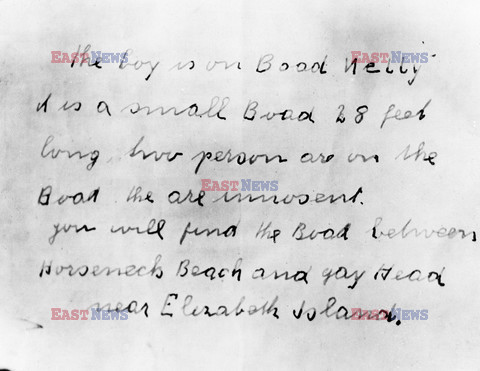 the boy is on Boad Nelly
it is a small Boad 28 feet
long, two person are on the
Boad. the are innosent.
you will find the Boad between
Horseneck Beach and gay Head
near Elizabeth Island.
EASTNEWS
EASTNEWS
EASTNEWS
EASTNEWS
EASTNEWS